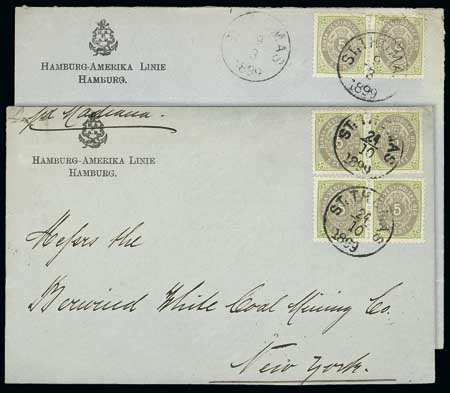 HAMBURG-AMERIKA LINIE
HAMBURG.
MAS
9
3
1899
ST. TH MAS
9
3
1899
per Madiana.
HAMBURG-AMERIKA LINIE
HAMBURG.
ST. TH MAS
24
10
1899
ST. TH MAS
24
10
1899
5
Messrs the
Berwind White Coal Mining Co.
New York.